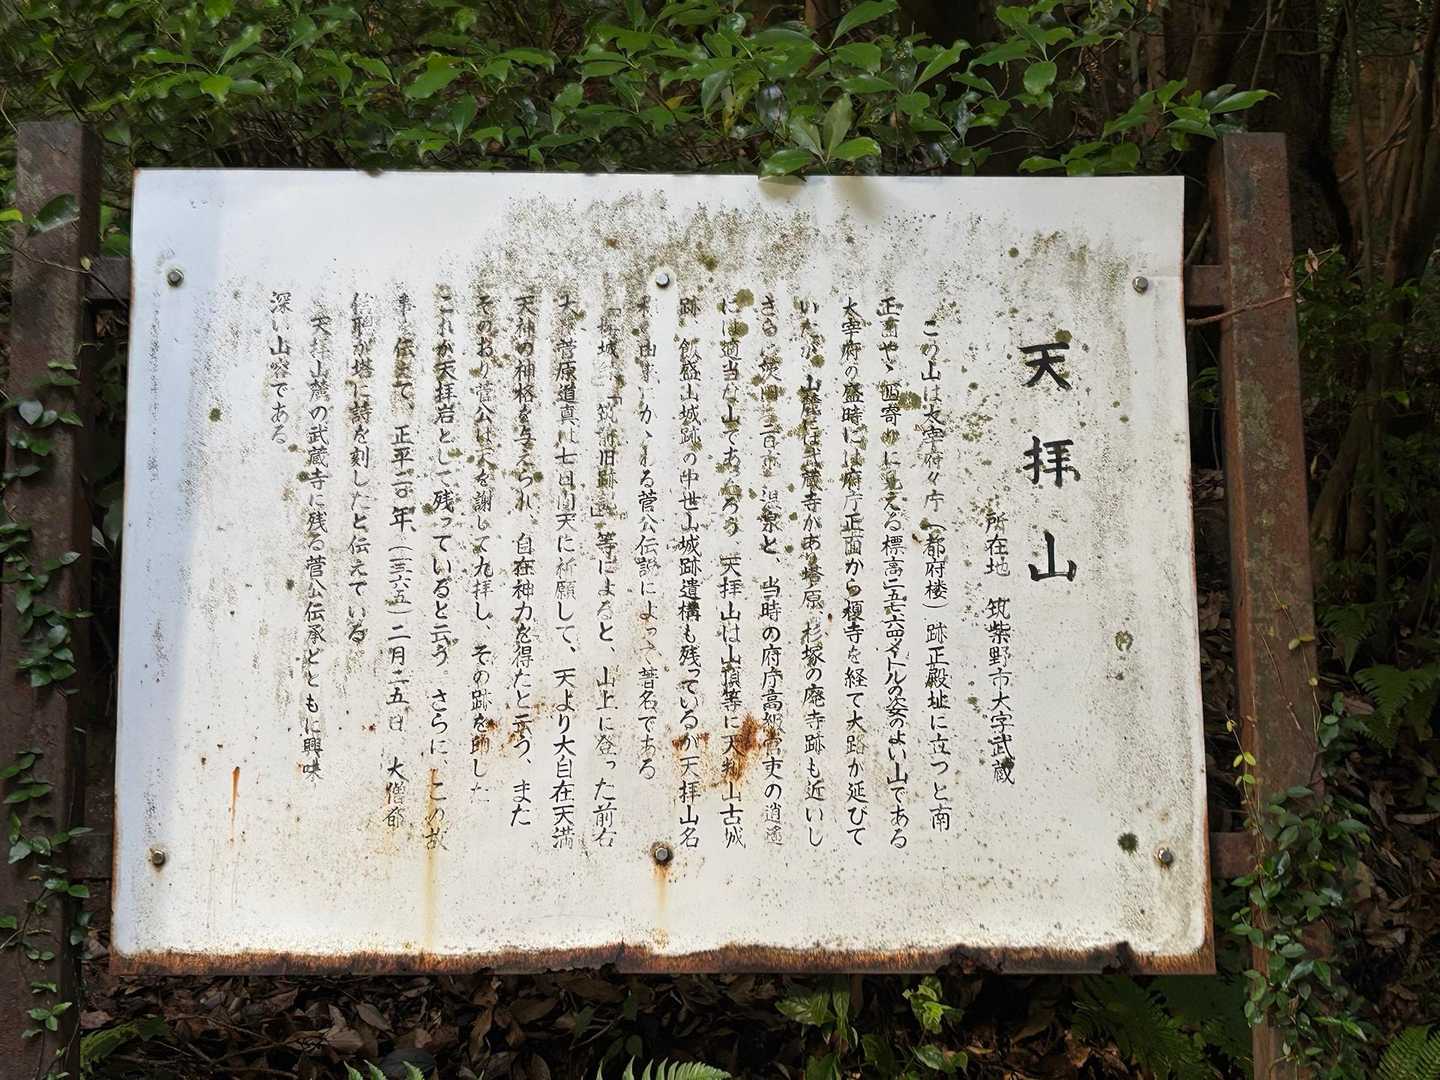 天拝山
所在地 筑紫野市大字武蔵
この山は大宰府々庁(都府楼)跡正殿址に立つと南
正面やゝ西寄りに見える標高二五七・六四メートルの姿のよい山である
大宰府の盛時には府庁正面から榎寺を経て大路が延びて
いたが、山麓には武蔵寺があり塔原、杉塚の廃寺跡も近いし
さらに と、当時の府庁高級官吏の逍遥
には適当な山であったろう 天拝山は山頂等に天判山古城
跡、飯盛山城跡の中世山城跡遺構も残っているが天拝山名
の由 かゝわる菅公伝説によって著名である
「 城 」「筑前旧跡 」等によると、山上に登った前右
大 菅原道真は七日間天に祈願して、天より大自在天満
天神の神格を与えられ、自在神力を得たと云う、また
そのおり菅公は天を謝して九拝し その跡を印した
これが天拝岩として残っていると云う。さらに、この故
事を伝えて、正平二〇年、(一三六五)二月二五日 大僧都
信聡が塔に詩を刻したと伝えている
天拝山麓の武蔵寺に残る菅公伝承とともに興味
深い山容である